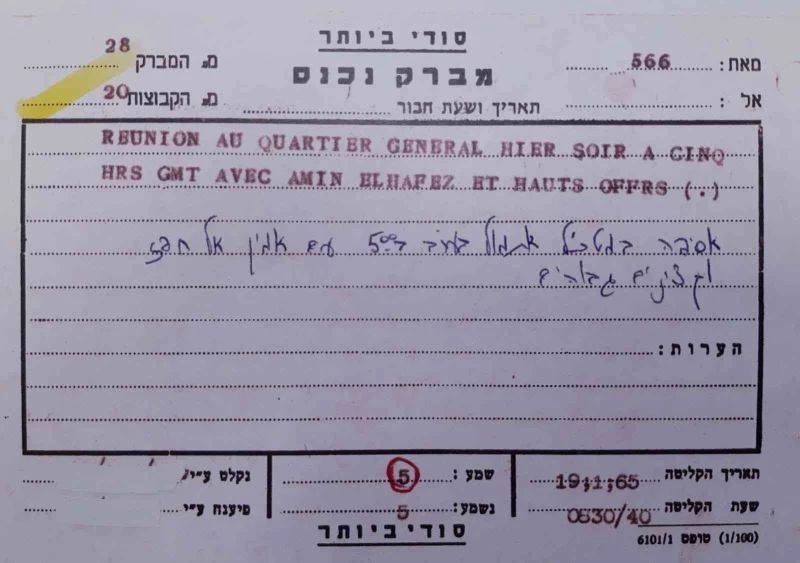 סודי ביותר
מס. המברק 28
מברק נכנס
מאת: 566
מס. הקבוצות 20
תאריך ושעת חבור
אל :
REUNION AU QUARTIER GENERAL HIER SOIR A CINQ
HRS GMT AVEC AMIN ELHAFEZ ET HAUTS OFFRS (.)
אסיפה במטכ"ל אתמול בערב ב-500 עם אמין אל חפז
וקצינים גבוהים
הערות:
תאריך הקליטה 19;1;65
שמע: 5
נקלט ע"י
שעת הקליטה 0630/40
נשמע: 5
פיענח ע"י
סודי ביותר
(1/100) טופס 6101/1